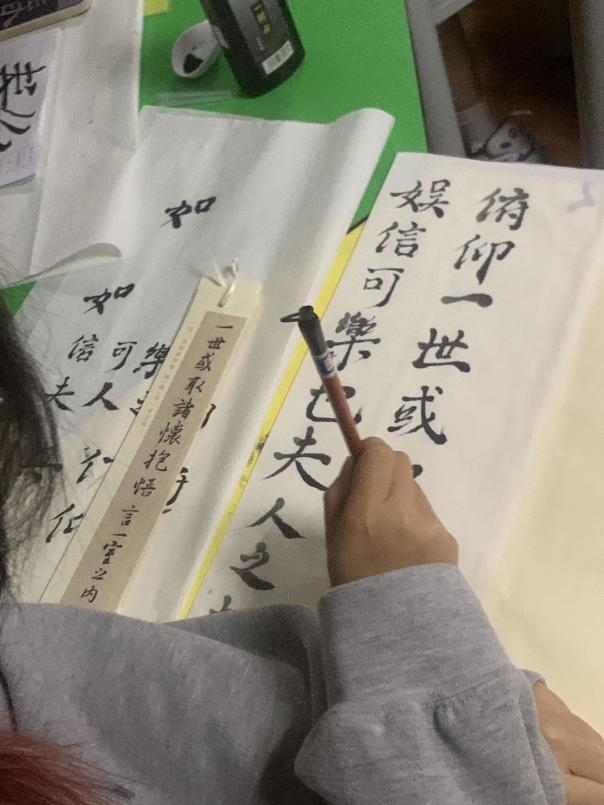 俯仰一世或
娱信可樂也夫人之
一世或取諸懷抱悟言一室之内
如
樂
可人
如信夫